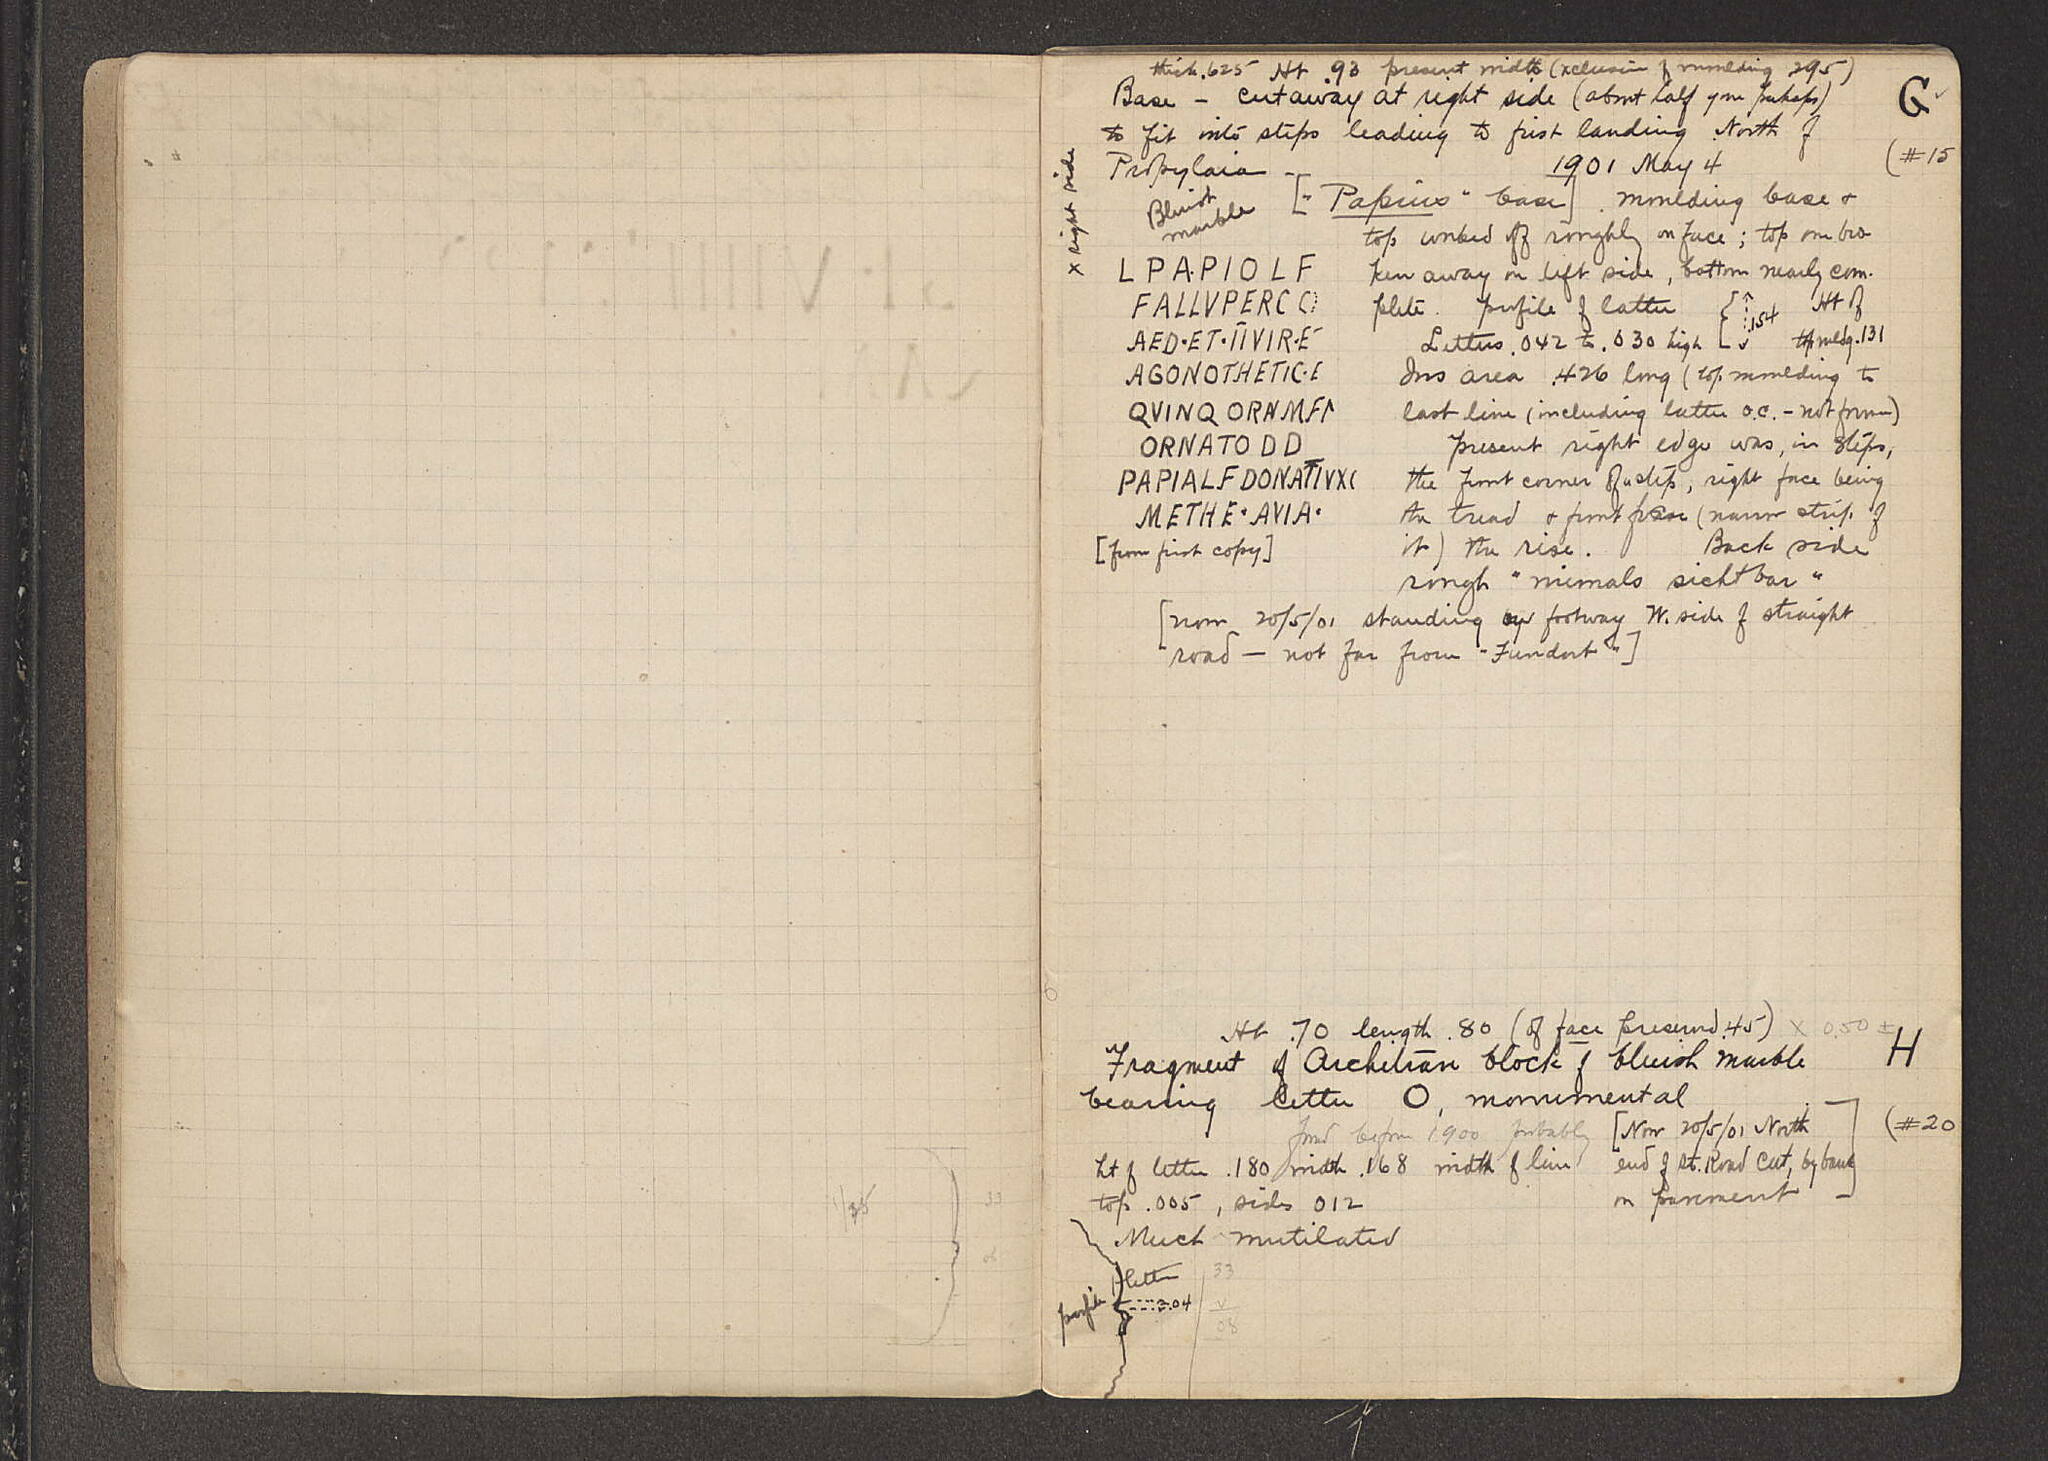 thick .625 Ht .93 present width (xclusive of moulding 295)
Base – cut away at right side (about half gone perhaps)
G
to fit into steps leading to first landing North of
(#15
Propylaia – 1901 May 4
x right side
Bluish marble
["Papius" base]. moulding base &
top worked off roughly on face; top one bro-
L PA·PIO L F
ken away on left side, bottom nearly com-
FALLVPERC O
plete. profile of latter .154 Ht of
AED·ET·IIVIR·E
Letters .042 to .030 high top mldg .131
AGONOTHETIC·E
Ins area .426 long (top moulding to
QVINQ ORNM
last line (including latter o.c. – not )
ORNATO D D
present right edge was, in steps,
PAPIALFDONATIVX
the front corner of a step, right face being
METHE·AVIA·
the tread & front face (narrow strip of
[from first copy]
it) the rise. Back side
rough "niemals sichtbar"
[now 20/5/01 standing by footway W. side of straight
road – not far from "Fundort"]
Ht .70 length .80 (of face preserved .45) x 0.50 ±
Fragment of Architrave block of bluish marble
H
bearing letter O, monumental
found before 1900 probably
[Now 20/5/01 North
(#20
ht of letter .180 width .168 width of line
end of St. Road Cut, by bank
top .005, sides 012
on pavement]
Much mutilated
profile
letter
.04
33
08
1/35
33